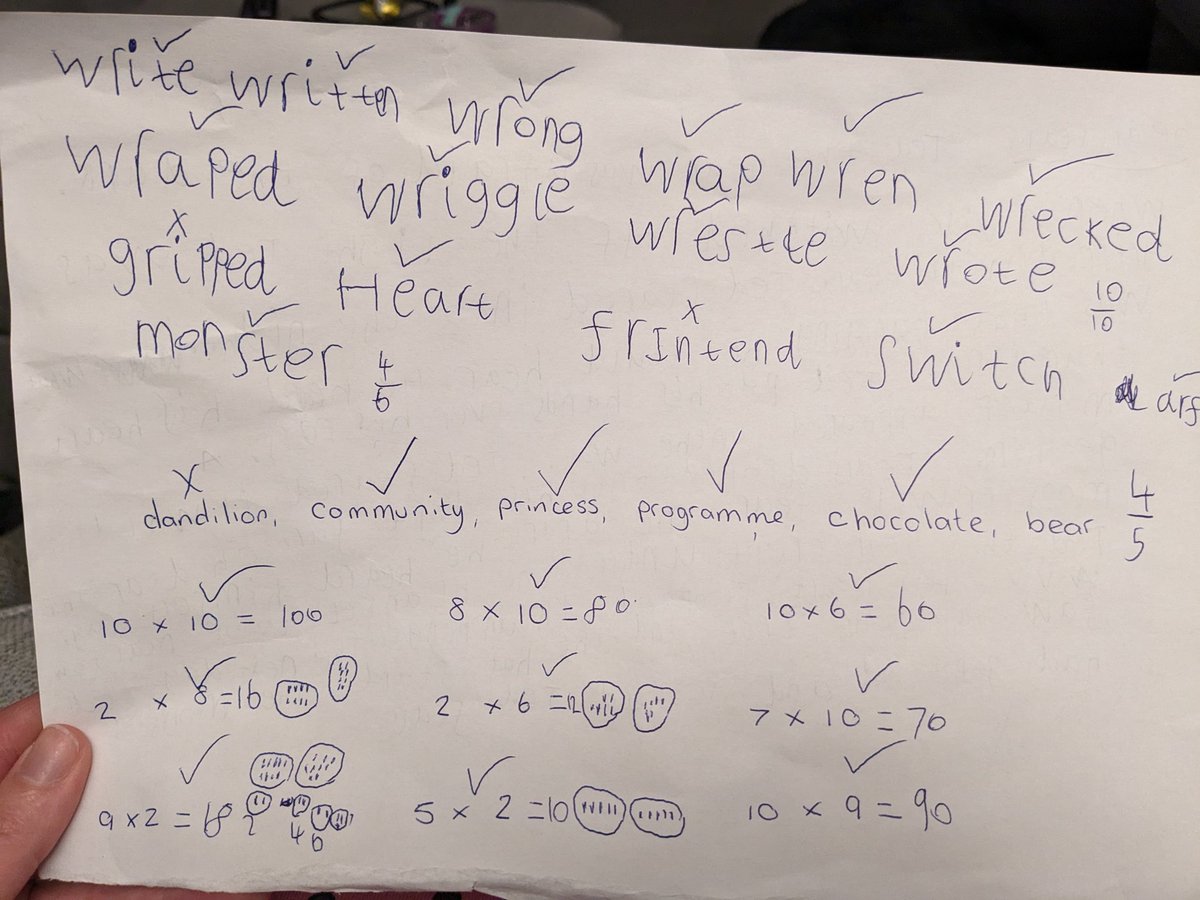 write written wrong
wraped wriggle wrap wren wrecked
gripped Heart wrestte wrote 10/10
monster 4/6 frIntend switch
dandilion, community, princess, programme, chocolate, bear 4/5
10 x 10 = 100 8 x 10 = 80 10 x 6 = 60
2 x 8 = 16 2 x 6 = 12 7 x 10 = 70
9 x 2 = 18 2 4 6 5 x 2 = 10 10 x 9 = 90